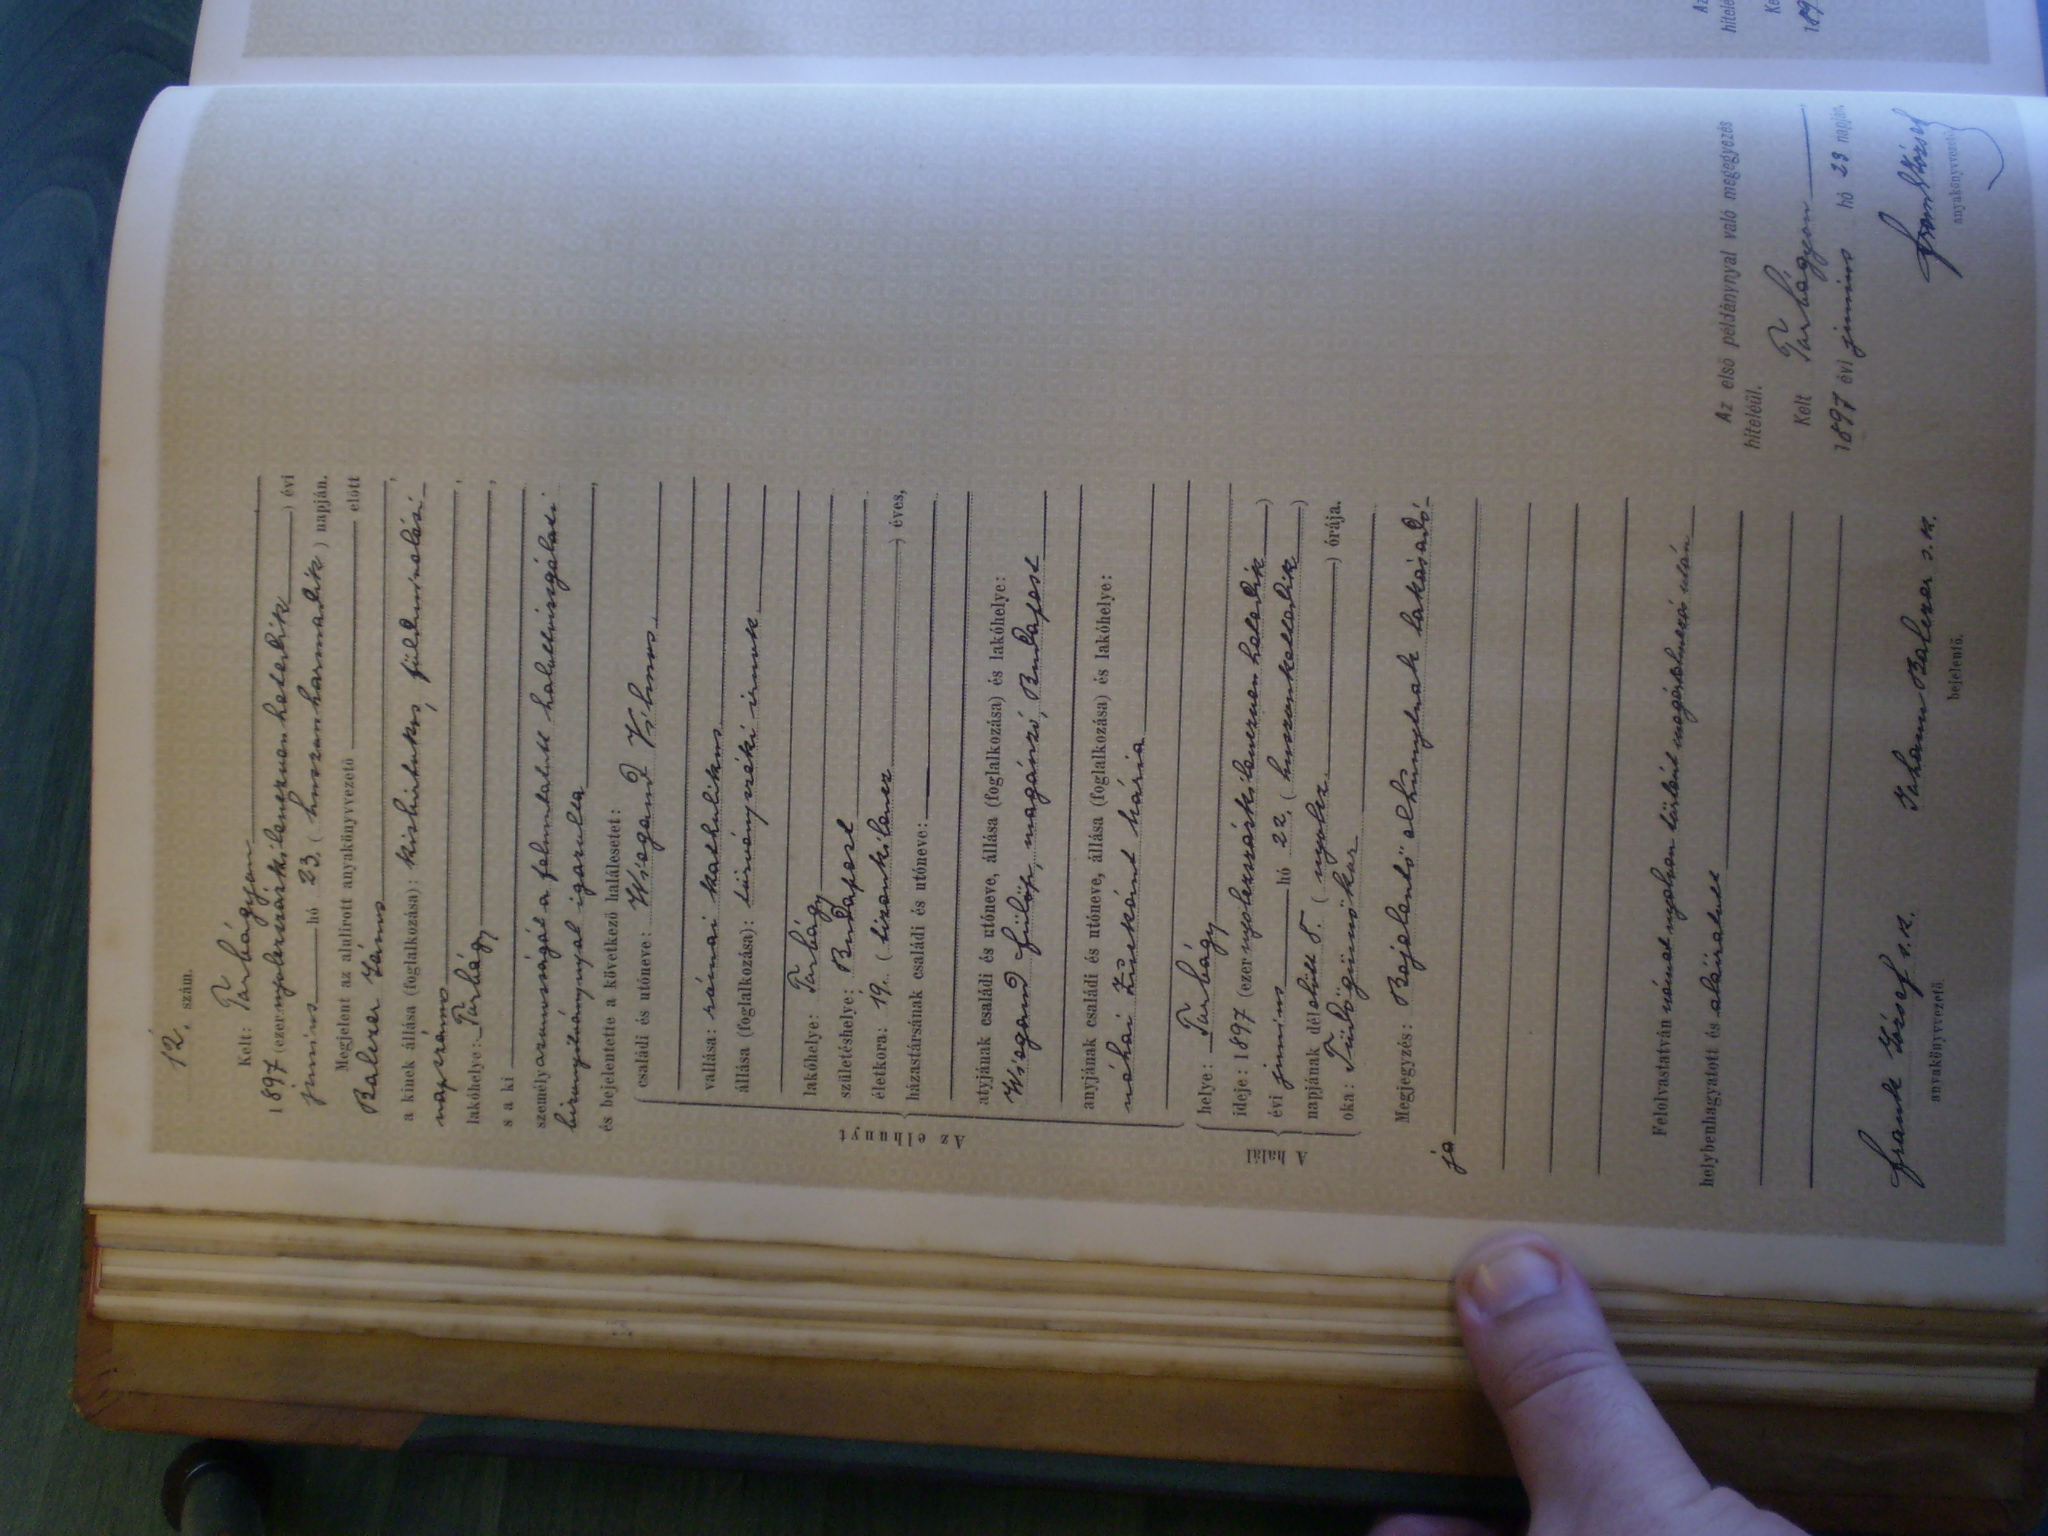 12. szám.
Kelt: Torbágyon
1897 (ezernyolczszázkilenczvenhetedik) évi
junius hó 23. (huszonharmadik) napján.
Megjelent az alulirott anyakönyvvezető előtt
Balczer János,
a kinek állása (foglalkozása): kisbirtokos, földmivelési
napszámos,
lakóhelye: Torbágy,
s a ki
személyazonosságát a felmutatott halottvizsgálati
bizonyitványnyal igazolta,
és bejelentette a következő halálesetet:
Az elhunyt
családi és utóneve: Wiegand Vilmos
vallása: római katholikus
állása (foglalkozása): törvényszéki irnok
lakóhelye: Torbágy
születéshelye: Budapest
életkora: 19. (tizenkilencz) éves,
házastársának családi és utóneve:
atyjának családi és utóneve, állása (foglalkozása) és lakóhelye:
Wiegand Fülöp, magánzó, Budapest
anyjának családi és utóneve, állása (foglalkozása) és lakóhelye:
néhai Mária
A halál
helye: Torbágy
ideje: 1897 (ezernyolczszázkilenczvenhetedik)
évi junius hó 22. (huszonkettedik)
napjának délelőtt 8. (nyolcz) órája.
oka: Tüdőgümőkor
Megjegyzés: Bejelentő elhunytnak lakásadó-
ja
Felolvastatván német nyelven történt megértetése után
helybenhagyatott és aláiratott
Frank József s.k.
anyakönyvvezető.
Johann Balczer s.k.
bejelentő.
Az első példánynyal való megegyezés
hiteléül.
Kelt Torbágyon,
1897 évi junius hó 23 napján.
Frank József
anyakönyvvezető.
Az
hitelé
Ke
189